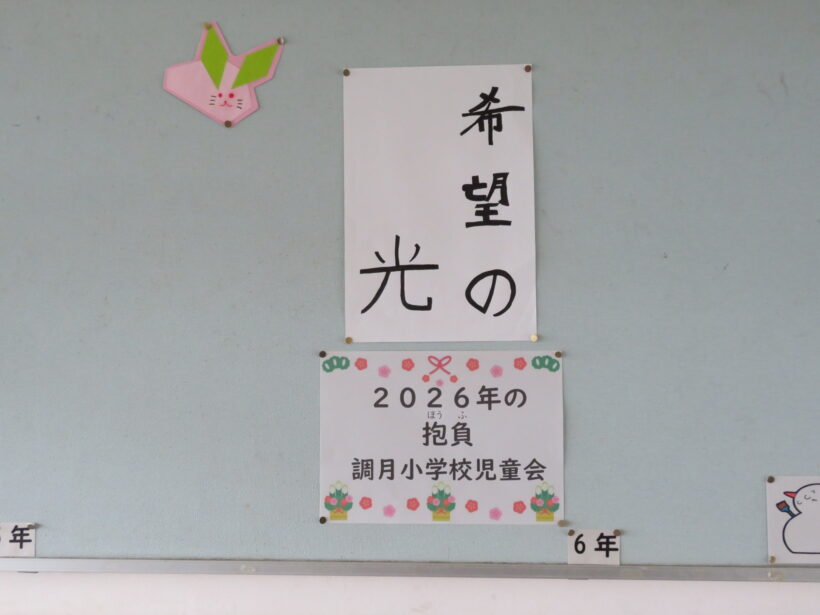 希望の
光
2026年の
ほうふ
抱負
調月小学校児童会
年
6年